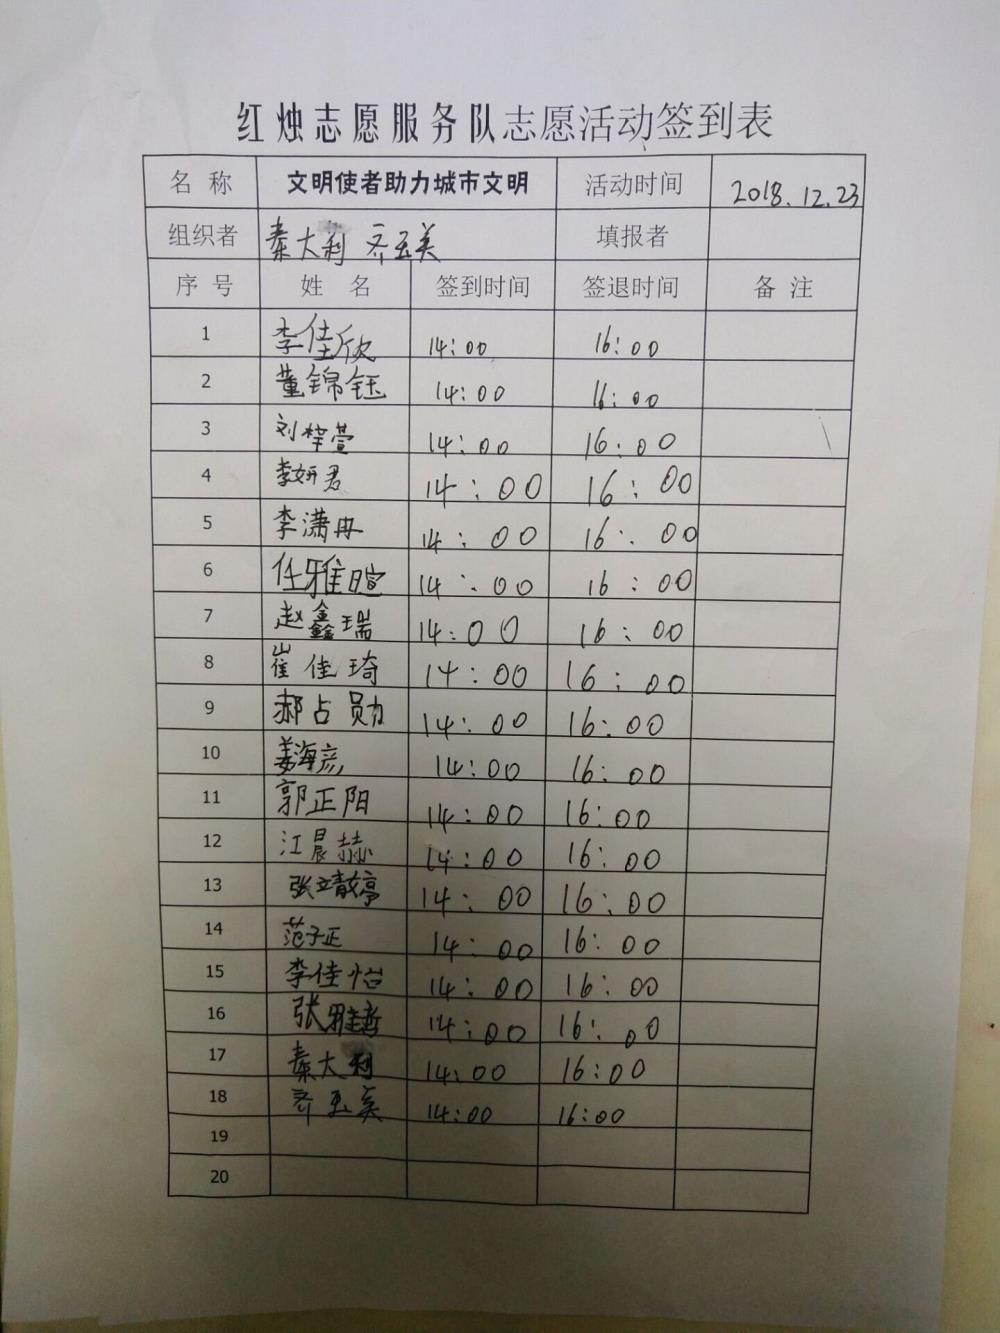 红烛志愿服务队志愿活动签到表
名 称 文明使者助力城市文明 活动时间 2018.12.23
组织者 秦大利 齐玉美 填报者
序 号 姓 名 签到时间 签退时间 备 注
1 李佳欣 14:00 16:00
2 董锦钰 14:00 16:00
3 刘梓萱 14:00 16:00
4 李妍君 14:00 16:00
5 李潇冉 14:00 16:00
6 任雅暄 14:00 16:00
7 赵鑫瑞 14:00 16:00
8 崔佳琦 14:00 16:00
9 郝占勋 14:00 16:00
10 姜海彦 14:00 16:00
11 郭正阳 14:00 16:00
12 江晨赫 14:00 16:00
13 张靖婷 14:00 16:00
14 范子正 14:00 16:00
15 李佳怡 14:00 16:00
16 张雅 14:00 16:00
17 秦大利 14:00 16:00
18 齐玉美 14:00 16:00
19
20